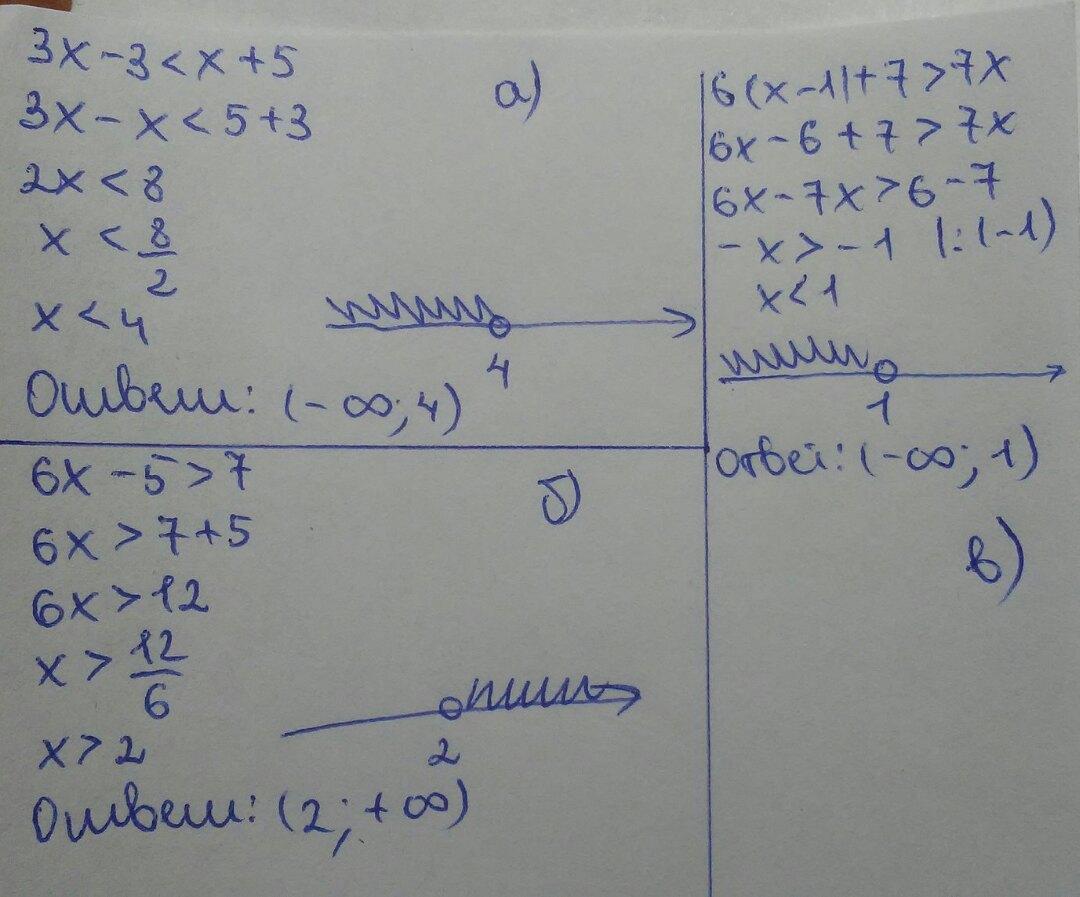 а)
3x - 3 < x + 5
3x - x < 5 + 3
2x < 8
x < 8/2
x < 4
4
Ответ: (-∞; 4)
б)
6x - 5 > 7
6x > 7 + 5
6x > 12
x > 12/6
x > 2
2
Ответ: (2; +∞)
6(x - 1) + 7 > 7x
6x - 6 + 7 > 7x
6x - 7x > 6 - 7
-x > -1 |: (-1)
x < 1
1
ответ: (-∞; 1)
в)